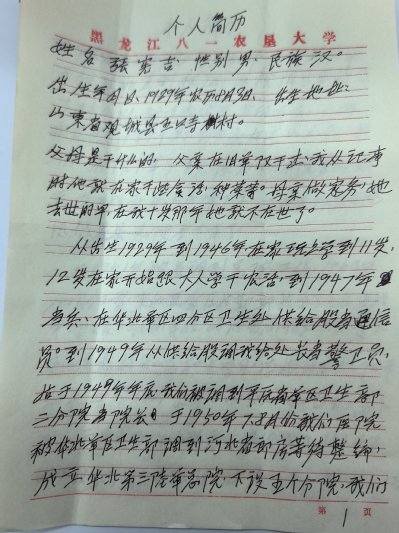 个人简历
黑龙江八一农垦大学
姓名 张宪吉，性别 男，民族 汉。
出生年月日，1929年农历8月3日，出生地址：
山东省观城县 村。
父母是干什么的，父亲在旧军队干过，我从记事
时他就在家干些农活，种菜等。母亲做家务，她
去世的早，在我十岁那年她就不在世了。
从出生1929年到1946年在家玩与学到11岁，
12岁在家开始跟大人学干农活，到1947年
当兵，在华北军区四分区卫生处供给股当通信
员。到1949年从供给股调我给处长当警卫员，
于1949年年底我们被调到 军区卫生部
二分院当院 于1950年7.8月份我们医院
被华北军区卫生部调到河北省廊房等待整编，
成立华北第三陆军总院，下设五个分院，我们
第 1 页